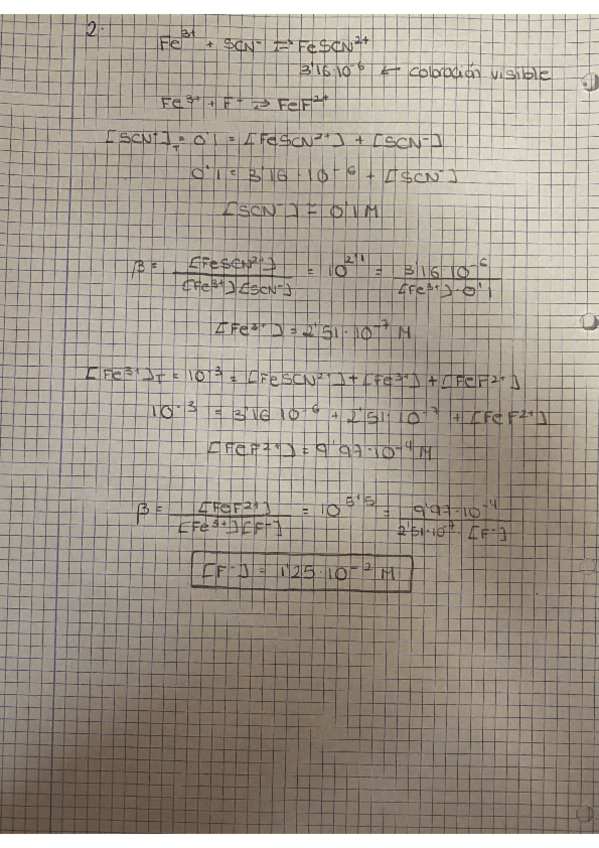 2.
Fe³⁺ + SCN⁻ ⇌ FeSCN²⁺
3'16·10⁻⁶ ← coloración visible
Fe³⁺ + F⁻ ⇌ FeF²⁺
[SCN⁻]T = 0'1 = [FeSCN²⁺] + [SCN⁻]
0'1 = 3'16·10⁻⁶ + [SCN⁻]
[SCN⁻] = 0'1 M
β = [FeSCN²⁺] / [Fe³⁺][SCN⁻] = 10^2'1 = 3'16·10⁻⁶ / [Fe³⁺]·0'1
[Fe³⁺] = 2'51·10⁻⁷ M
[Fe³⁺]T = 10⁻³ = [FeSCN²⁺] + [Fe³⁺] + [FeF²⁺]
10⁻³ = 3'16·10⁻⁶ + 2'51·10⁻⁷ + [FeF²⁺]
[FeF²⁺] = 9'97·10⁻⁴ M
β = [FeF²⁺] / [Fe³⁺][F⁻] = 10^5'5 = 9'97·10⁻⁴ / 2'51·10⁻⁷ [F⁻]
[F⁻] = 1'25·10⁻² M